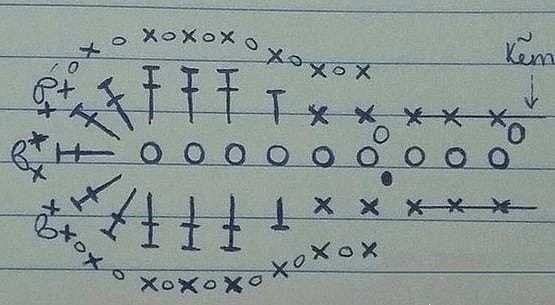 Kẽm